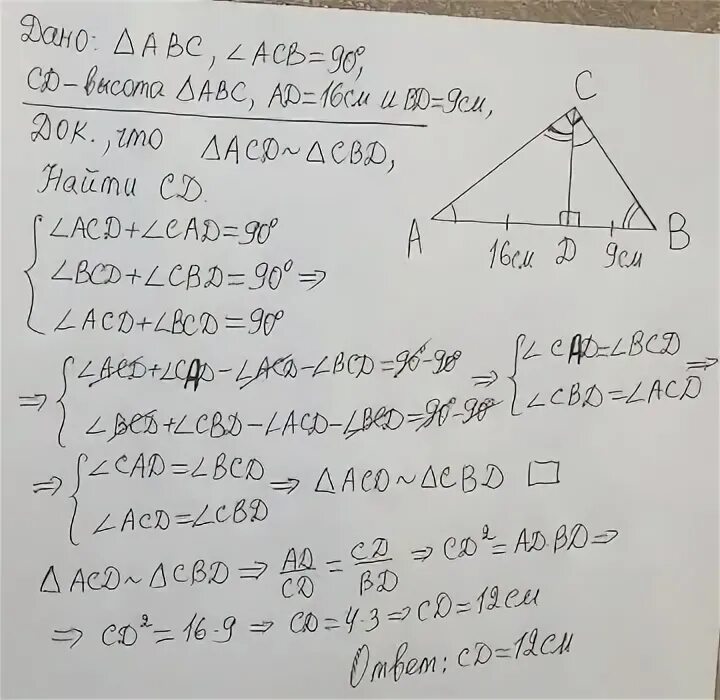 Дано: △ABC, ∠ACB=90°,
CD-высота △ABC, AD=16см и BD=9см,
Док., что △ACD~△CBD,
Найти CD.
C
A
16см D 9см B
{∠ACD+∠CAD=90°
∠BCD+∠CBD=90° ⇒
∠ACD+∠BCD=90°
⇒ {∠ACD+∠CAD-∠ACD-∠BCD=90°-90°
∠BCD+∠CBD-∠ACD-∠BCD=90°-90°
⇒ {∠CAD=∠BCD ⇒
∠CBD=∠ACD
⇒ {∠CAD=∠BCD ⇒ △ACD~△CBD □
∠ACD=∠CBD
△ACD~△CBD ⇒ AD/CD = CD/BD ⇒ CD²=AD·BD ⇒
⇒ CD²=16·9 ⇒ CD=4·3 ⇒ CD=12см
Ответ: CD=12см